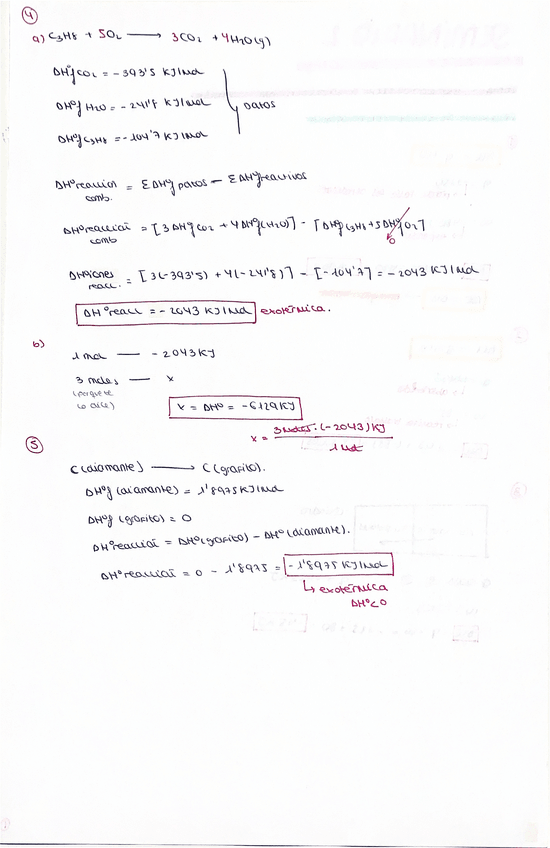 4
a) C3H8 + 5O2 ⟶ 3CO2 + 4H2O(g)
ΔHºf CO2 = -393'5 KJ/mol
ΔHºf H2O = -241'8 KJ/mol DATOS
ΔHºf C3H8 = -104'7 KJ/mol
ΔHºreaccion comb. = Σ ΔHºf - Σ ΔHºf reactivos
ΔHºreacción comb = [3 ΔHºf CO2 + 4 ΔHºf (H2O)] - [ΔHºf C3H8 + 5 ΔHºf O2] 0
react. = [3(-393'5) + 4(-241'8)] - [-104'7] = -2043 KJ/mol
ΔHº reacc = -2043 KJ/mol exotérmica.
b)
1 mol — -2043 KJ
3 moles — x
(porque te lo dice)
x = ΔHº = -6129 KJ
x = 3 moles · (-2043) KJ / 1 mol
5
C (diamante) ⟶ C (grafito).
ΔHºf (diamante) = 1'8975 KJ/mol
ΔHºf (grafito) = 0
ΔHºreacción = ΔHº (grafito) - ΔHº (diamante).
ΔHºreacción = 0 - 1'8975 = -1'8975 KJ/mol
↳ exotérmica
ΔHº<0